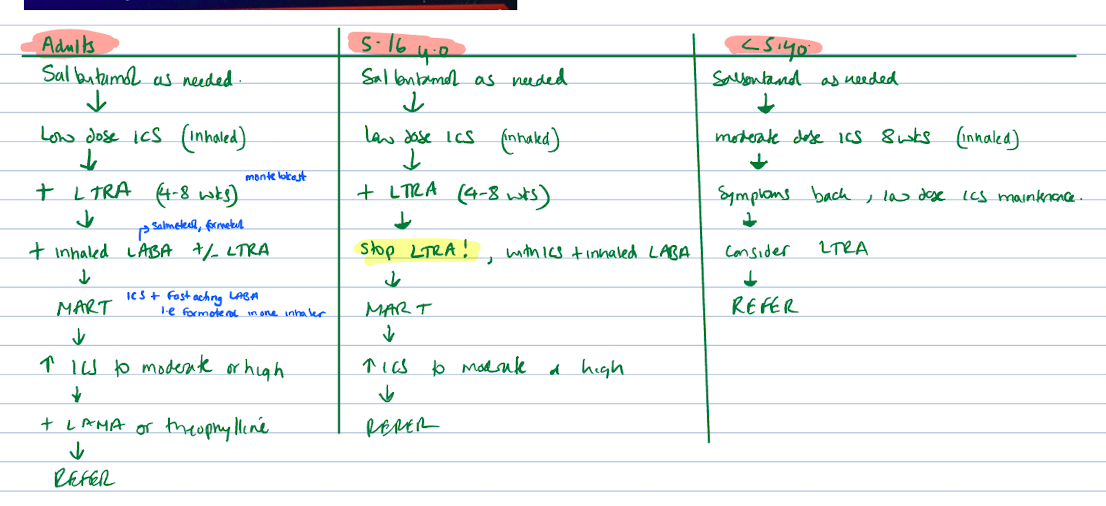 Adults
Salbutamol as needed.
↓
Low dose ICS (inhaled)
↓
+ LTRA (4-8 wks) montelukast
↓ → Salmeterol, formeterol
+ inhaled LABA +/- LTRA
↓
MART ICS + Fast acting LABA
i.e formoterol in one inhaler
↓
↑ ICS to moderate or high
↓
+ LAMA or theophylline
↓
REFER
5-16 y.o
Salbutamol as needed
↓
low dose ICS (inhaled)
↓
+ LTRA (4-8 wks)
↓
Stop LTRA! , with ICS + inhaled LABA
↓
MART
↓
↑ ICS to moderate or high
↓
REFER
<5 y.o.
Salbutamol as needed
↓
moderate dose ICS 8wks (inhaled)
↓
Symptoms back, low dose ICS maintenance.
↓
Consider LTRA
↓
REFER